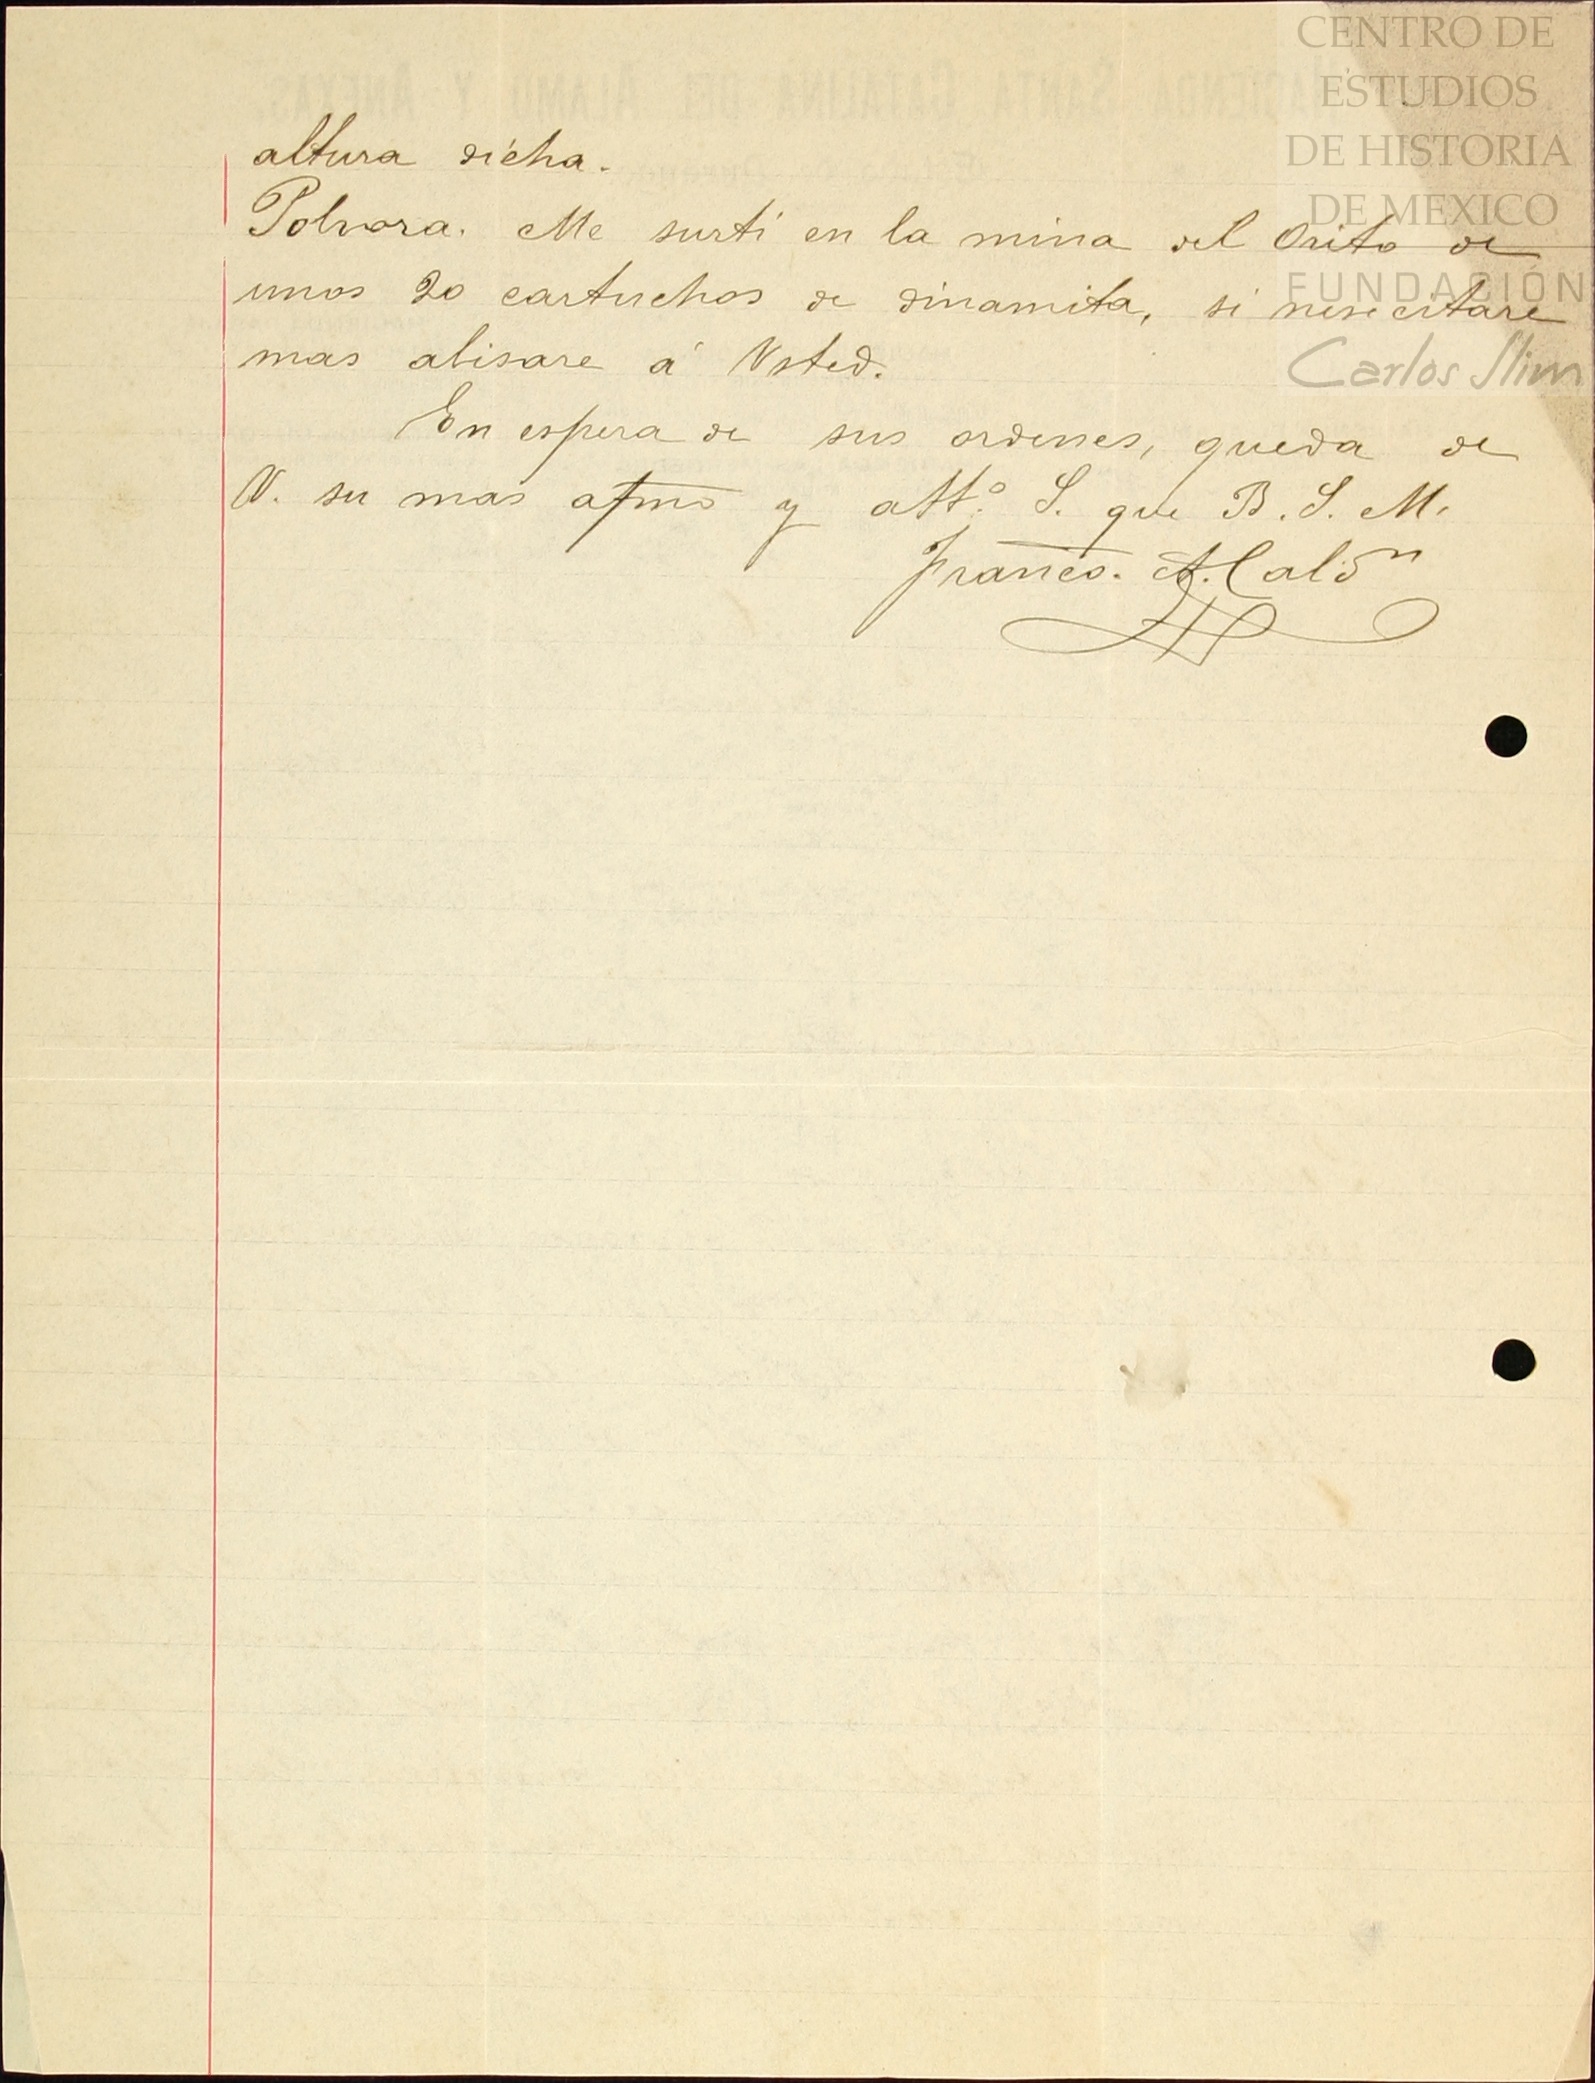 CENTRO DE
ESTUDIOS
DE HISTORIA
DE MEXICO
FUNDACIÓN
Carlos Slim
HACIENDA SANTA CATALINA DEL ALAMO Y ANEXAS.
altura dicha.
Polvora. Me surti en la mina del Orito de
unos 20 cartuchos de dinamita, si nesecitare
mas abisare á Usted.
En espera de sus ordenes, queda de
V. su mas afmo y att.º S. que B. S. M.
Franco. A. Cal